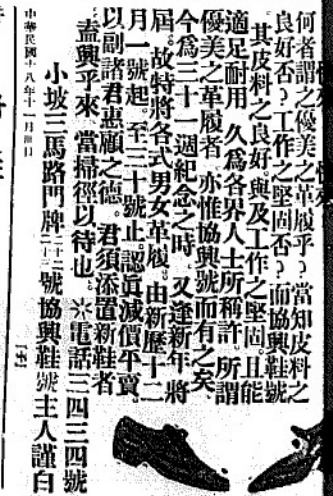 何者謂之優美之革履乎?當知皮料之
良好否?工作之堅固否?而協興鞋號
其皮料之良好。與及工作之堅固。且能
適足耐用 久為各界人士所稱許、所謂
優美之革履者 亦惟協興號而有之矣、
今為三十一週紀念之時、又逢新年將
屆。故特將各式男女革履。由新歷十二
月一號起。至三十號止。認眞減價平賣、
以副諸君惠顧之德。君須添置新鞋者
盍興乎來、當掃徑以待也。※電話三四三四號
小坡三馬路門牌二十一二十三號協興鞋號主人謹白
中華民國十八年十一月 日